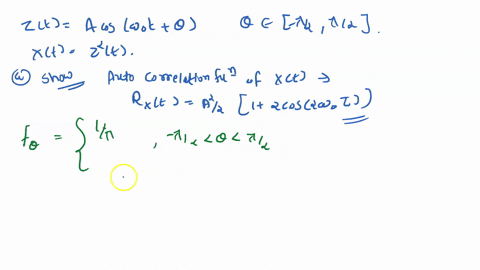 Z(t) = A cos(ω₀t + θ)    θ ∈ [-π/2, π/2].
X(t) = Z²(t).
(a) Show Auto Correlation fuⁿ of X(t) →
R_X(t) = A²/2 [1 + 2cos(2ω₀τ)]
f_θ = { 1/π , -π/2 < θ < π/2